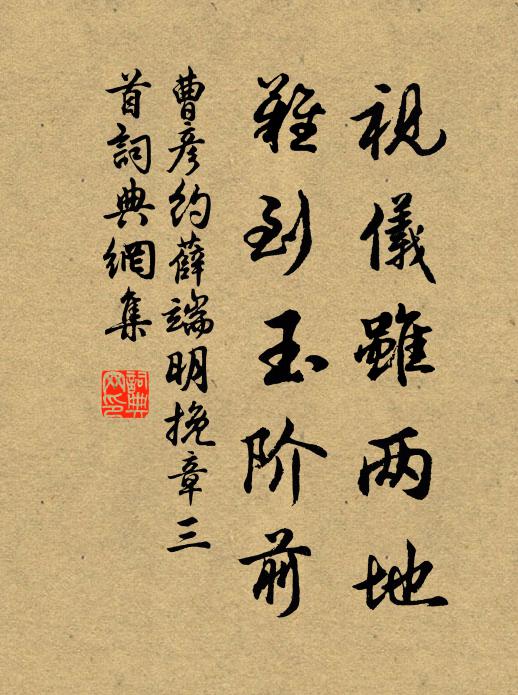 視儀雖两地
難到玉阶前
曹彦約薛端明挽章三
首詞典網集
詞典
网印